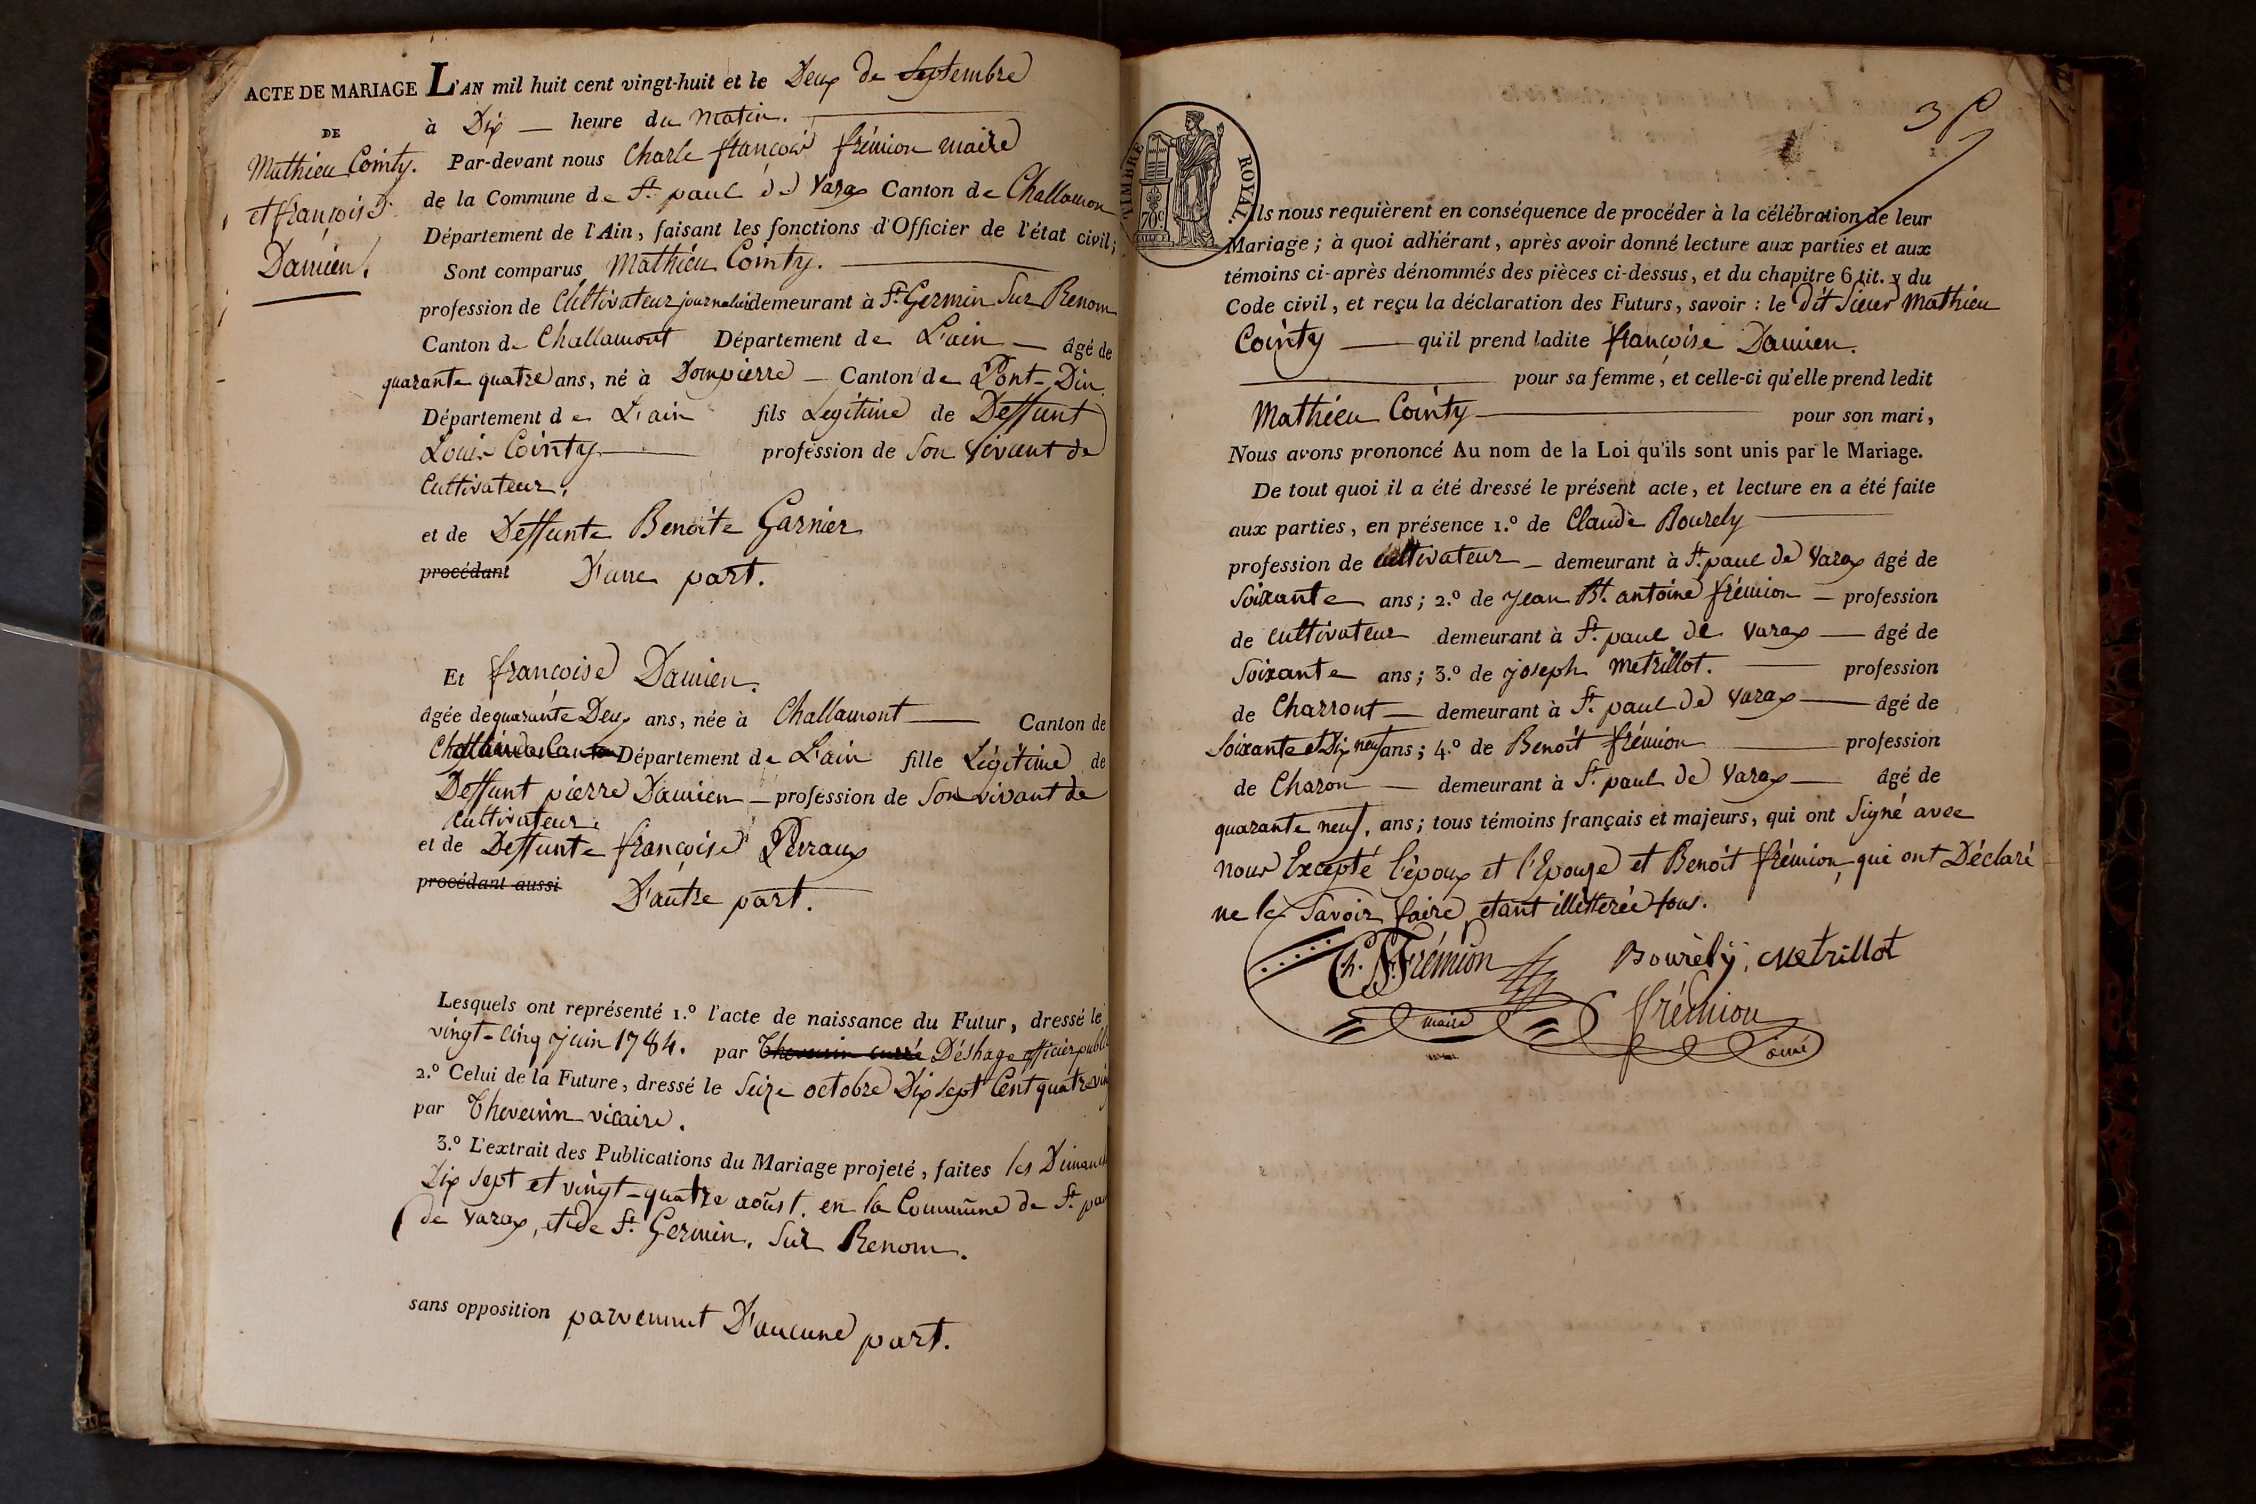 ACTE DE MARIAGE L'AN mil huit cent vingt-huit et le Deux de Septembre
DE à Dix — heure du matin.
Mathieu Cointy. Par-devant nous Charle françois frémion maire
et françoise de la Commune de St. paul de Varax Canton de Challamon
Damien. Département de l'Ain, faisant les fonctions d'Officier de l'état civil;
Sont comparus Mathieu Cointy.
profession de Cultivateur journalier demeurant à St. Germin Sur Renom
Canton de Challamont Département de L'ain — âgé de
quarante quatre ans, né à Dompierre — Canton de Pont-Din
Département de L'ain fils Legitime de Deffunt
Louis Cointy profession de Son vivant de
Cultivateur,
et de Deffunte Benoite Garnier
procédant D'une part.
Et françoise Damien.
âgée de quarante Deux ans, née à Challamont — Canton de
Département de L'ain fille Légitime de
Deffunt pierre Damien — profession de Son vivant de
Cultivateur.
et de Deffunte françoise Perraux
procédant aussi D'autre part.
Lesquels ont représenté 1.º l'acte de naissance du Futur, dressé le
vingt-cinq juin 1784. par Thevenin curré Déshage officier publi
2.º Celui de la Future, dressé le Seize octobre Dix sept Cent quatre vin
par Thevenin vicaire.
3.º L'extrait des Publications du Mariage projeté, faites les Dimanch
Dix sept et vingt-quatre août. en la Commune de St. pau
de Varax, et de St. Germin, Sur Renom.
sans opposition parvennut D'aucune part.
TIMBRE ROYAL.
70c
Ils nous requièrent en conséquence de procéder à la célébration de leur
Mariage ; à quoi adhérant, après avoir donné lecture aux parties et aux
témoins ci-après dénommés des pièces ci-dessus, et du chapitre 6 tit. v du
Code civil, et reçu la déclaration des Futurs, savoir : le dit Sieur Mathieu
Cointy — qu'il prend ladite françoise Damien.
pour sa femme, et celle-ci qu'elle prend ledit
Mathieu Cointy pour son mari,
Nous avons prononcé Au nom de la Loi qu'ils sont unis par le Mariage.
De tout quoi il a été dressé le présent acte, et lecture en a été faite
aux parties, en présence 1.º de Claude Bourely
profession de cultivateur — demeurant à St. paul de Varax âgé de
Soixante ans; 2.º de Jean Bt. antoine frémion — profession
de cultivateur demeurant à St. paul de Varax — âgé de
Soixante ans; 3.º de joseph Metrillot. profession
de Charront — demeurant à St. paul de Varax — âgé de
Soixante et Dix neuf ans; 4.º de Benoit frémion profession
de Charon — demeurant à St. paul de Varax — âgé de
quarante neuf, ans; tous témoins français et majeurs, qui ont Signé avec
nous Excepté l'époux et l'Epouse et Benoit frémion, qui ont Déclaré
ne le Savoir faire, etant illitterée tous.
Ch. F. Frémion Bourely, Metrillot
maire frémion
ainé